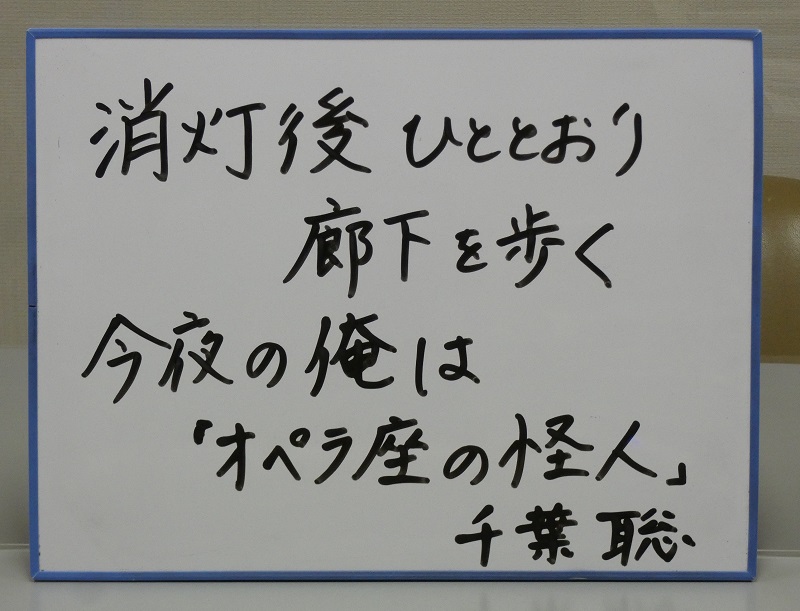 消灯後ひととおり
廊下を歩く
今夜の俺は
「オペラ座の怪人」
千葉聡